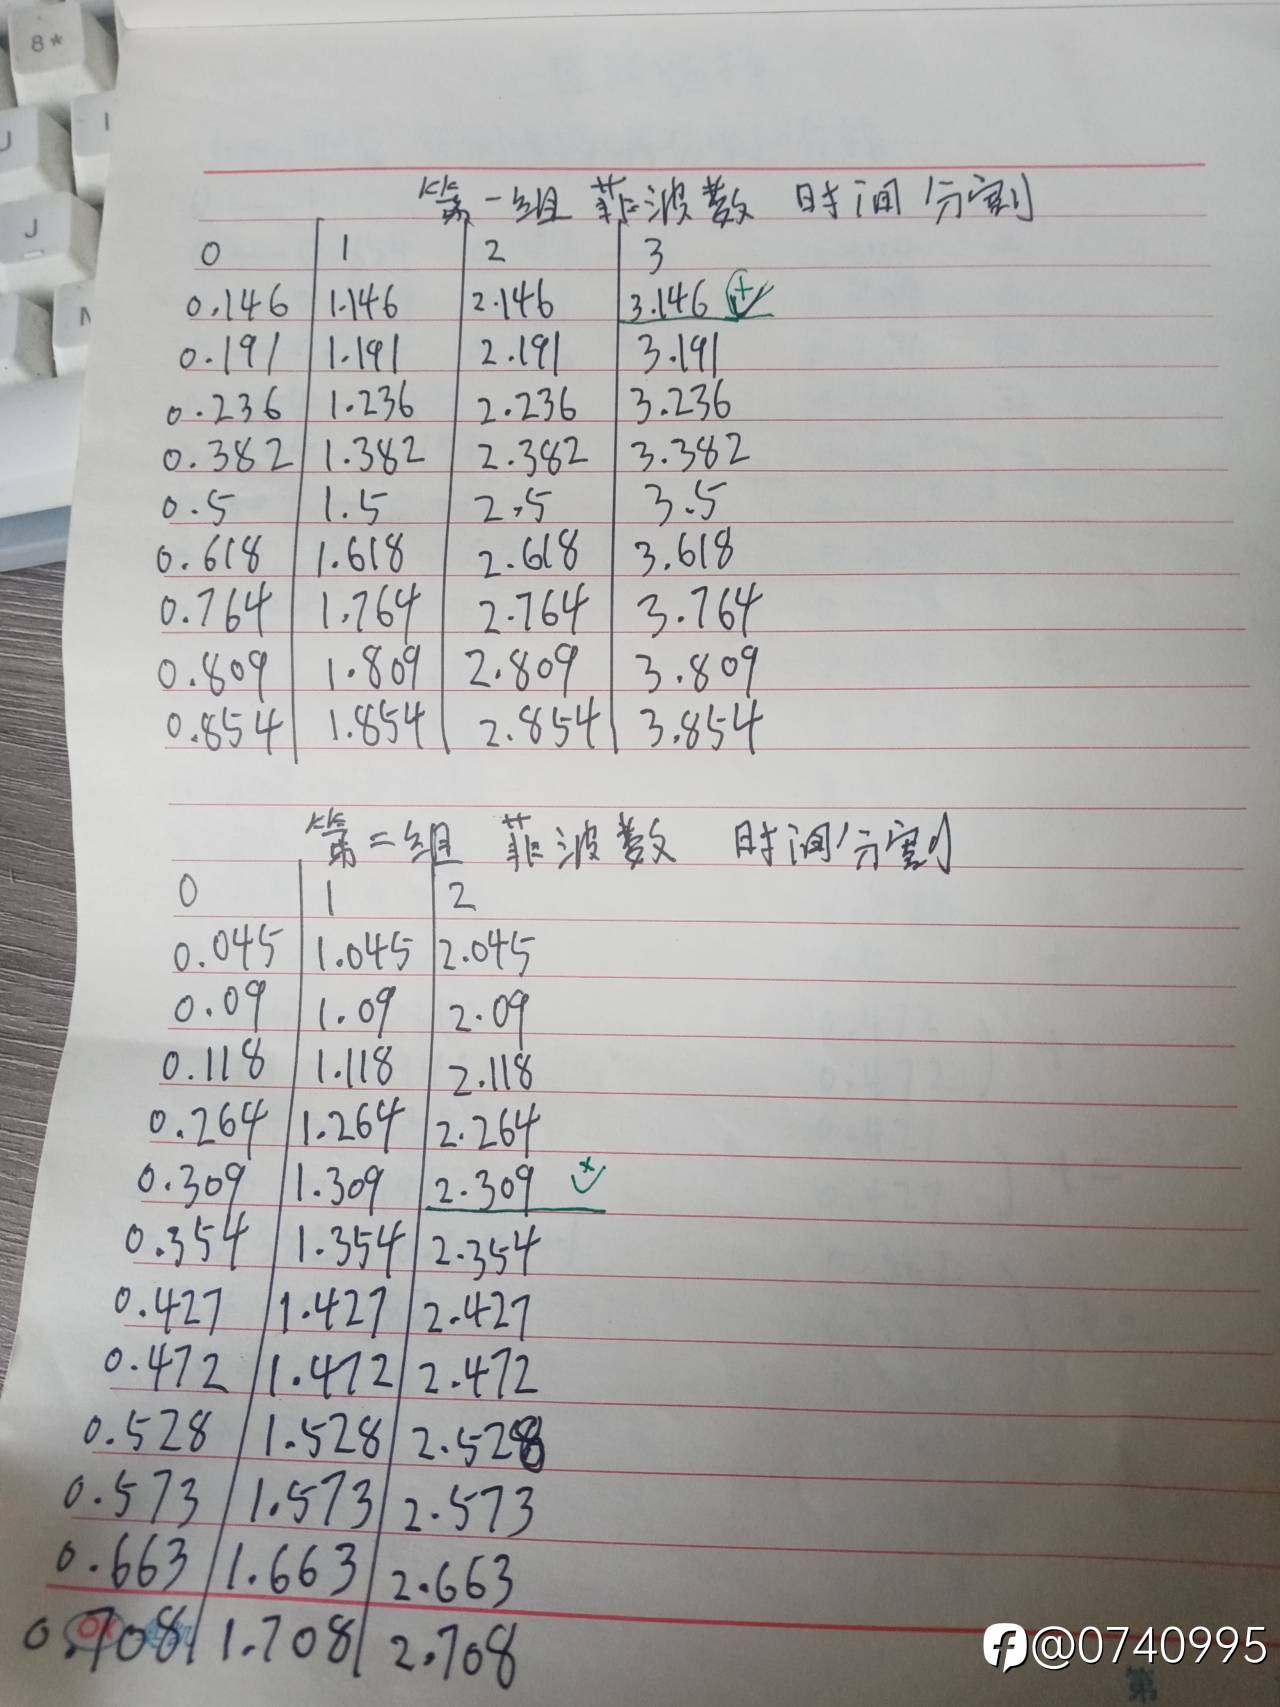 8*
J
第一组 菲波数 时间分割
0 1 2 3
0.146 1.146 2.146 3.146 +
0.191 1.191 2.191 3.191
0.236 1.236 2.236 3.236
0.382 1.382 2.382 3.382
0.5 1.5 2.5 3.5
0.618 1.618 2.618 3.618
0.764 1.764 2.764 3.764
0.809 1.809 2.809 3.809
0.854 1.854 2.854 3.854
第二组 菲波数 时间分割
0 1 2
0.045 1.045 2.045
0.09 1.09 2.09
0.118 1.118 2.118
0.264 1.264 2.264
0.309 1.309 2.309 +
0.354 1.354 2.354
0.427 1.427 2.427
0.472 1.472 2.472
0.528 1.528 2.528
0.573 1.573 2.573
0.663 1.663 2.663
0.708 1.708 2.708
OK
@0740995
第